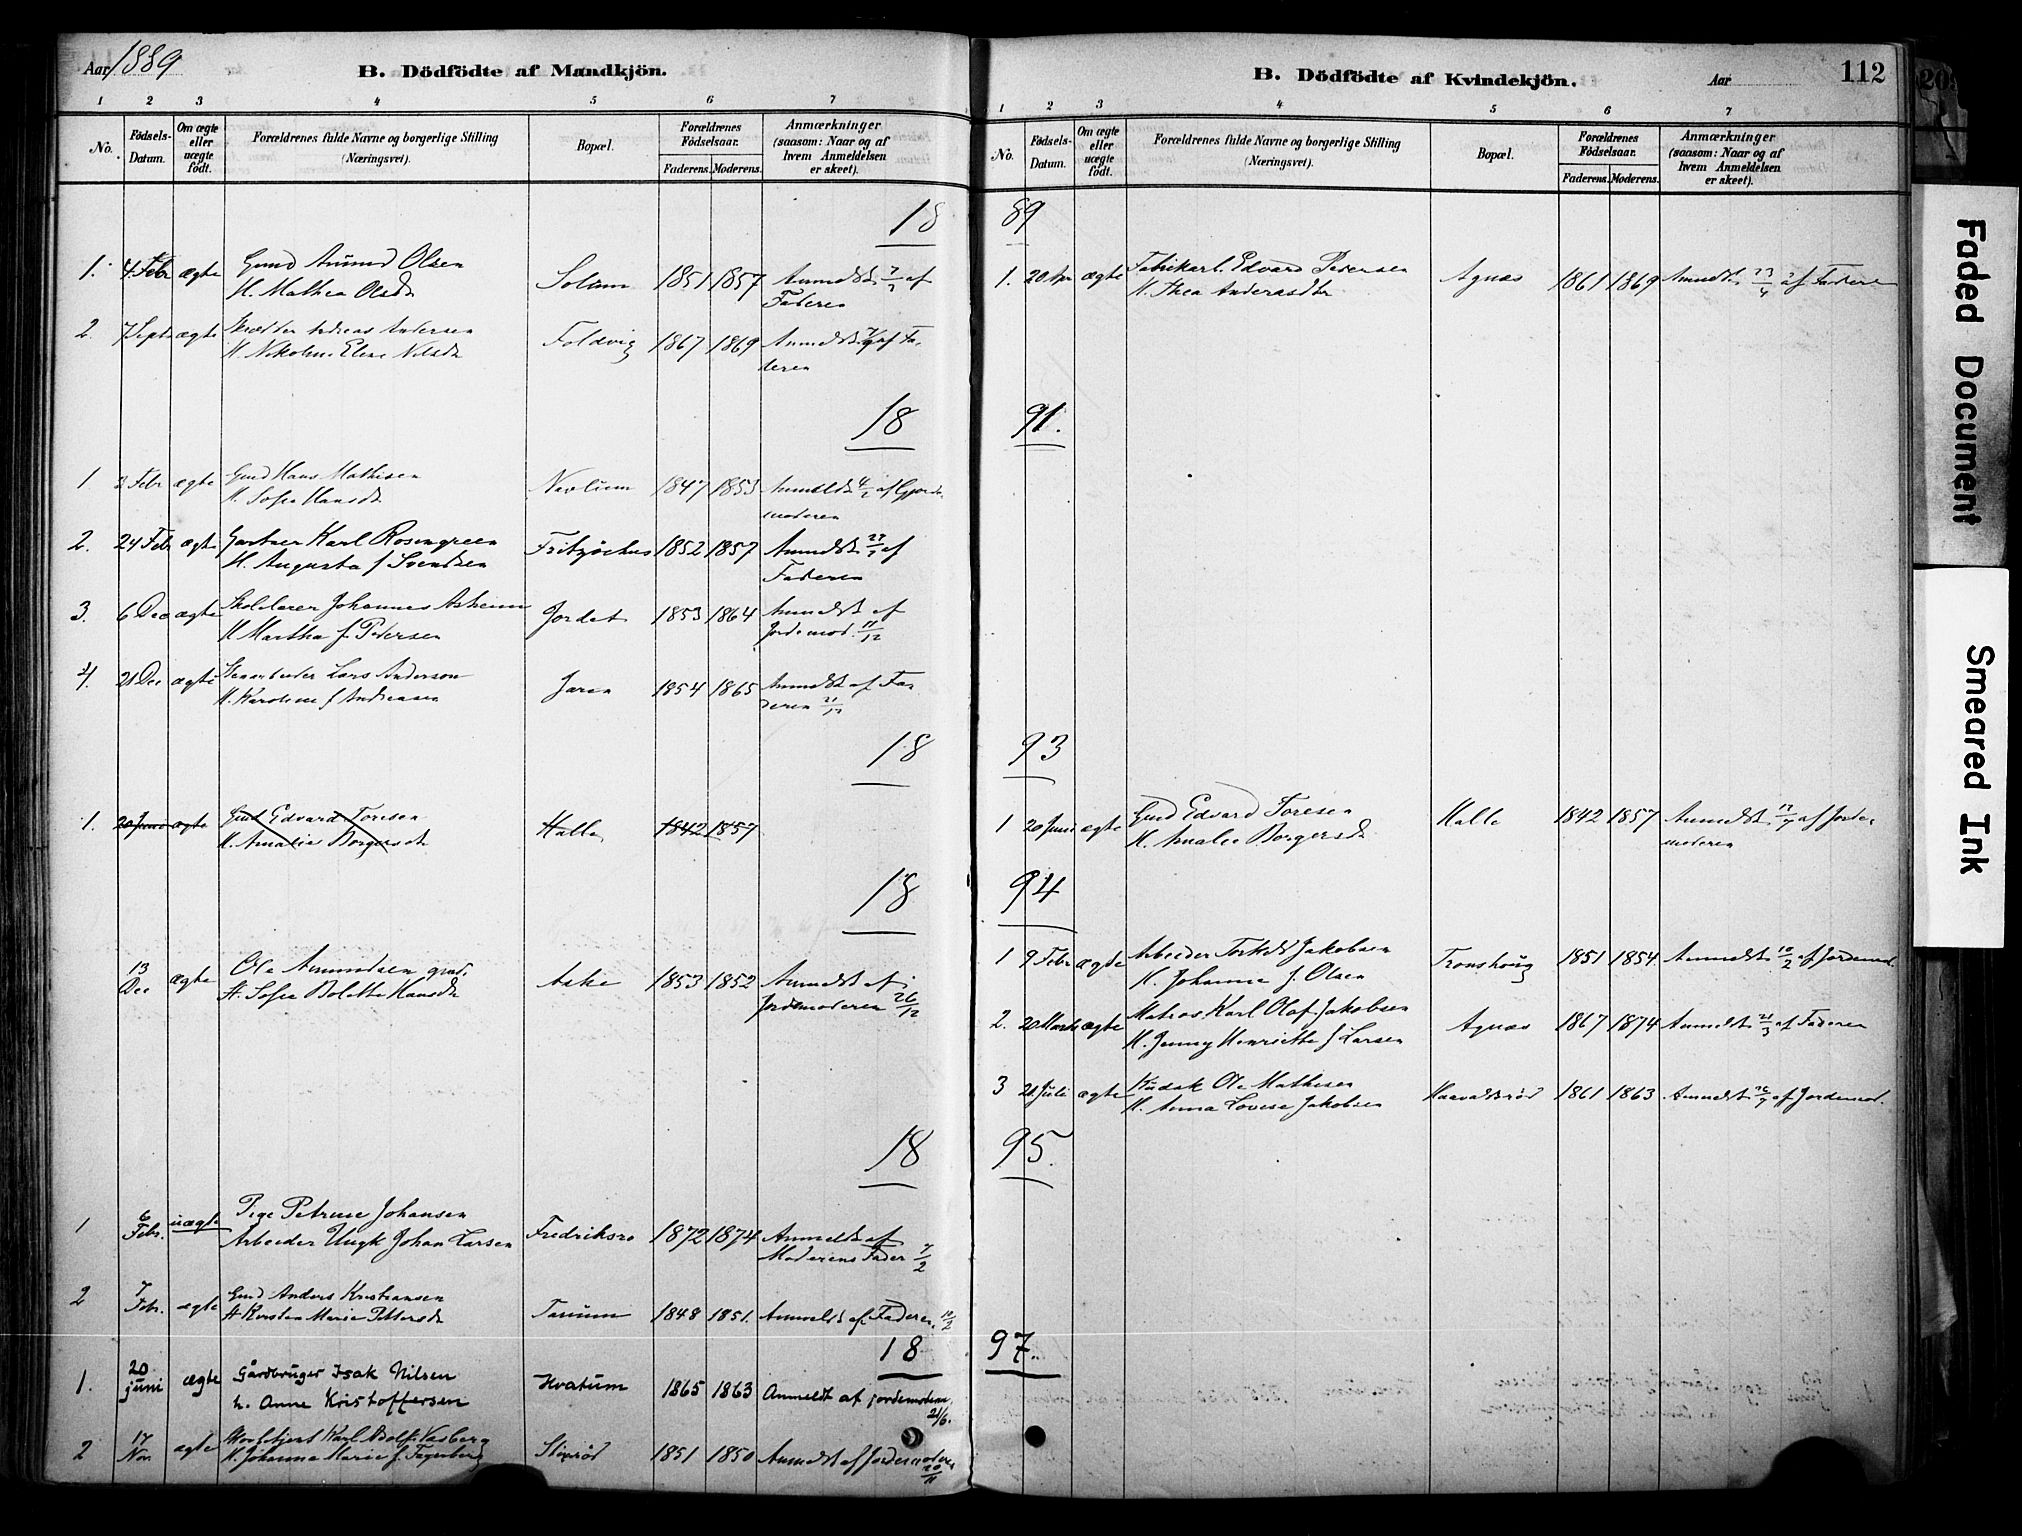 Aar 1889
B. Dödfödte af Mandkjön.
1 2 3 4 5 6 7
No. Födsels-Datum. Om ægte eller uægte födt. Forældrenes fulde Navne og borgerlige Stilling (Næringsvei). Bopæl. Forældrenes Födselsaar. Faderens. Moderens. Anmærkninger (saasom: Naar og af hvem Anmeldelsen er skeet).
18
1. 4 Febr ægte Gmd Amund Olsen Solum 1851 1857 Anmeldt af
H. Mathea Olsdr Faderen
2. 7 Sept ægte Andreas Andersen Foldvig 1867 1869 Anmeldt af Fa-
H. Nikoline Elene Nilsdr deren
18
1 2 Febr ægte Gmd Hans Mathisen Navlum 1847 1853 Anmeldt 4/2 af Gjorde-
H. Sofie Hansdr moderen
2. 24 Febr ægte Gartner Karl Rosengreen Fritzöehus 1852 1857 Anmeldt 27/2 af
H. Augusta f Svendsen Faderen
3. 6 Dec ægte Skolelærer Johannes Askeim Jordet 1853 1864 Anmeldt af
H Martha f. Pedersen Jordemod. 11/12
4. 21 Dec ægte Stenarbeider Lars Anderson Jaren 1854 1865 Anmeldt af Fa
H. Karoline f Andreasen deren 21/12
18
1. 20 Juni ægte Gmd Edvard Toresen Halle 1842 1857
H. Amalie Borgersdr
18
13 Dec ægte Ole Amundsen gmd. Aske 1853 1852 Anmeldt af
H. Sofie Bolette Hansdr Jordemoderen 26/12
18
1 6 Febr. uægte Pige Petrine Johansen Fredriksro 1872 1874 Anmeldt af
Arbeider Ungk Johan Larsen Moderens Fader 7/2
2 7 Febr. ægte Gmd Anders Kristiansen Tanum 1848 1851. Anmeldt af Faderen 10/2
H Kirsten Marie Pettersdr
18
1. 20 juni ægte Gårdbruger Isak Nilsen Hvatum 1865 1863 Anmeldt af jordemoderen
h. Anne Kristoffersen 21/6.
2 17 Nov. ægte Karl Adolf Vasberg 1851 1850 Anmeldt af Jordemoderen
H. Johanna Marie f. Fagerberg 20/11
B. Dödfödte af Kvindekjön.
Aar
112
1 2 3 4 5 6 7
No. Födsels-Datum. Om ægte eller uægte födt. Forældrenes fulde Navne og borgerlige Stilling (Næringsvei). Bopæl. Forældrenes Födselsaar. Faderens. Moderens. Anmærkninger (saasom: Naar og af hvem Anmeldelsen er skeet).
89
1. 20 Apr ægte Fabrikarb. Edvard Pedersen Agnæs 1861 1869 Anmeldt 23/4 af Faderen
H. Thea Andersdtr
91.
93
1 20 Juni ægte Gmd Edvard Toresen Halle 1842 1857 Anmeldt af Jorde-
H. Amalie Borgersdr moderen
94
1 9 Febr ægte Arbeider Torkild Jakobsen Tronshoug 1851 1854. Anmeldt 10/2 af Jordemod.
H. Johanne f. Olsen
2. 20 Marts ægte Matros Karl Olaf Jakobsen Agnæs 1867 1874 Anmeldt 21/3 af Faderen
H. Jenny Henriette f Larsen
3 21 Juli ægte Ole Mathisen Haavaldsrød 1861 1863 Anmeldt af Jordemod.
H. Anna Lovise Jakobsen
95.
97.
Faded Document
Smeared Ink